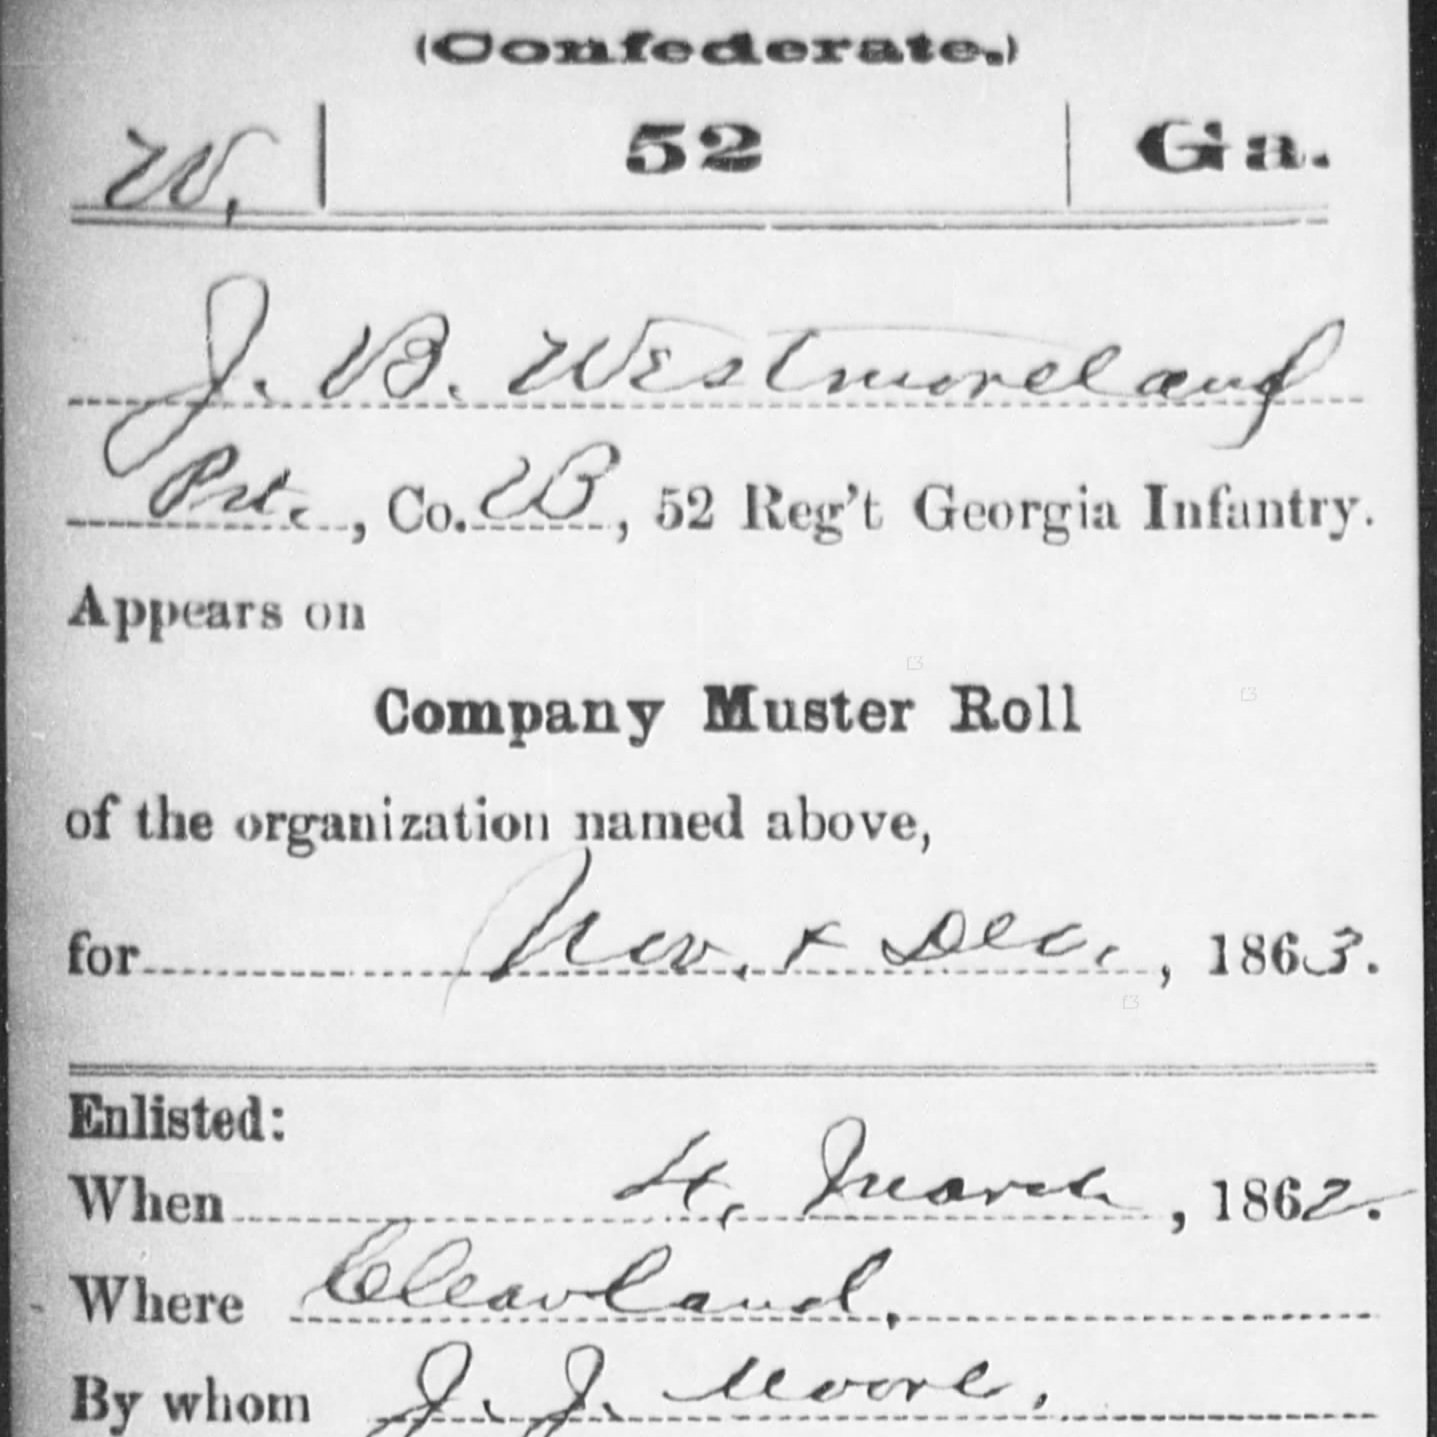 (Confederate.)
W. | 52 | Ga.
J. B. Westmoreland
Pvt., Co. B, 52 Reg't Georgia Infantry.
Appears on
Company Muster Roll
of the organization named above,
for Nov. & Dec., 1863.
Enlisted:
When 4, March, 1862.
Where Cleavland,
By whom J. J. Moore.